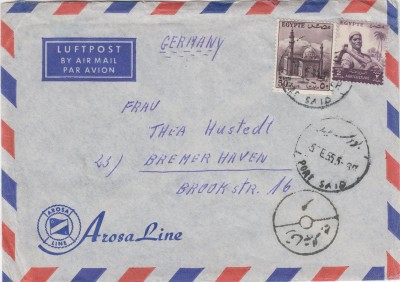 LUFTPOST
BY AIR MAIL
PAR AVION
GERMANY
EGYPTE
مصر
EGYPTE
مصر
PORT SAID
FRAU
THEA Hustedt
23) BREMER HAVEN
BROOKSTR. 16
بورسعيد
PORT SAID
AROSA
LINE
Arosa Line